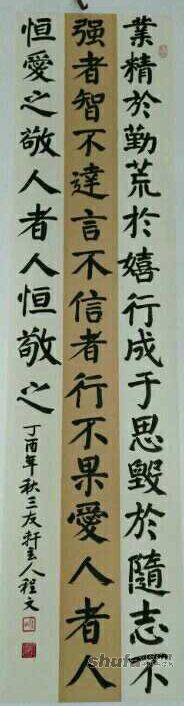 業精於勤荒於嬉行成于思毀於隨志不
强者智不達言不信者行不果愛人者人
恒愛之敬人者人恒敬之
丁酉年秋三友轩主人程文